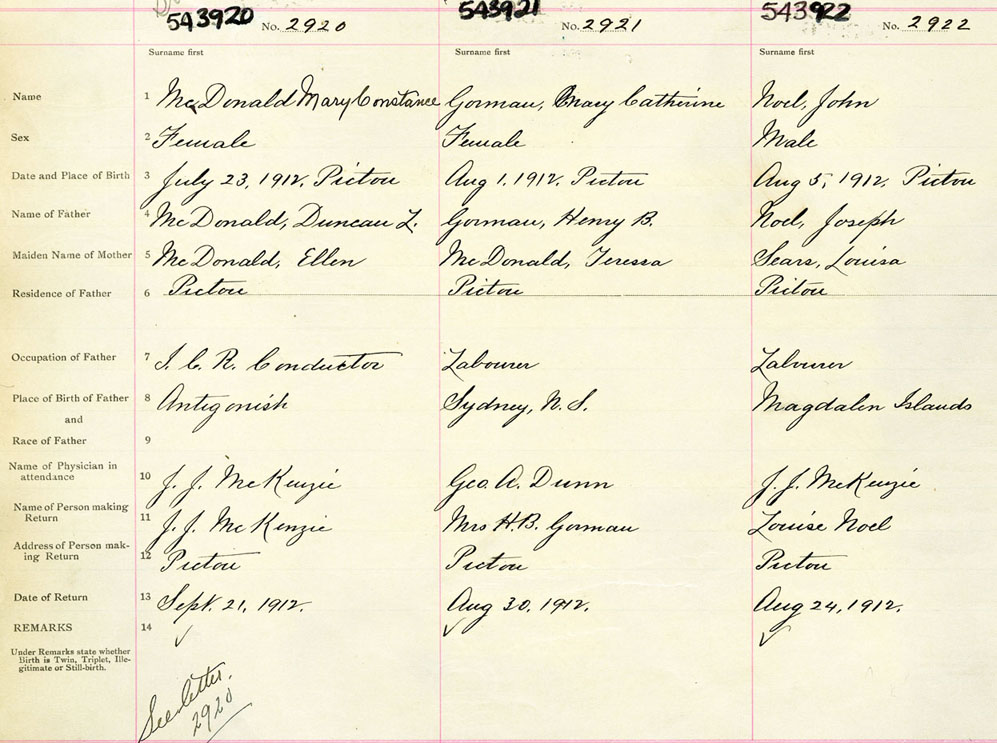 543920 No. 2920 543921 No. 2921 543922 No. 2922
Surname first Surname first Surname first
Name 1 McDonald Mary Constance Gorman, Mary Catherine Noel, John
Sex 2 Female Female Male
Date and Place of Birth 3 July 23, 1912, Pictou Aug 1, 1912, Pictou Aug 5, 1912, Pictou
Name of Father 4 McDonald, Duncan L. Gorman, Henry B. Noel, Joseph
Maiden Name of Mother 5 McDonald, Ellen McDonald, Teressa Sears, Louisa
Residence of Father 6 Pictou Pictou Pictou
Occupation of Father 7 I. C. R. Conductor Labourer Labourer
Place of Birth of Father 8 Antigonish Sydney, N. S. Magdalen Islands
and
Race of Father 9
Name of Physician in
attendance 10 J. J. McKenzie Geo. A. Dunn J. J. McKenzie
Name of Person making
Return 11 J. J. McKenzie Mrs H. B. Gorman Louise Noel
Address of Person mak-
ing Return 12 Pictou Pictou Pictou
Date of Return 13 Sept. 21, 1912. Aug 30, 1912. Aug 24, 1912.
REMARKS 14
Under Remarks state whether
Birth is Twin, Triplet, Ille-
gitimate or Still-birth.
See letter.
2920